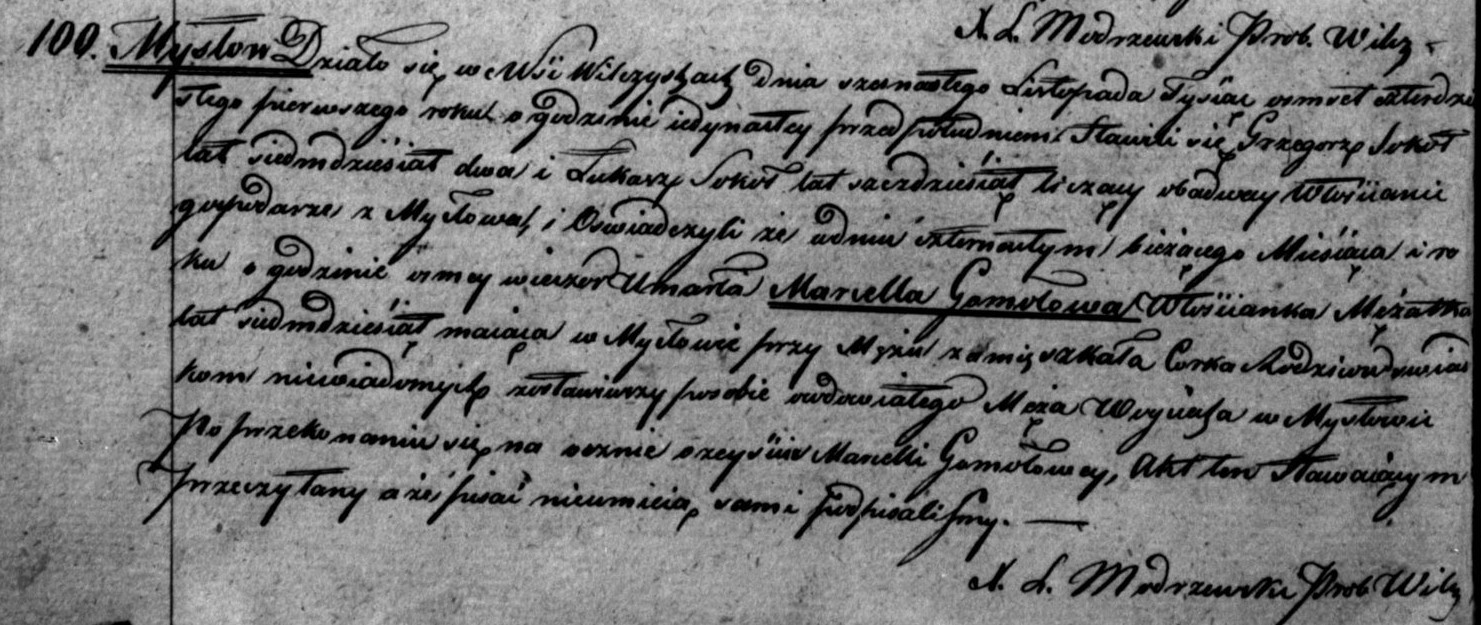 X. L. Modrzewski Prob. Wilcz.
100. Mysłow Działo się w Wsi Wilczyskach dnia szesnastego Listopada Tysiac osmset czterdzie
stego pierwszego roku o godzinie iedynastey przed południem Stawili się Grzegorz Sokoł
lat siedmdziesiąt dwa i Łukasz Sokoł lat szczdziesiąt liczący obadway Włościanie
gospodarze z Mysłowa, i Oswiadczyli że wdniu czternastym bieżącego Miesiąca i ro
ku o godzinie osmey wieczor Umarła Marcella Gomołowa Włościanka Mężatka
lat siedmdziesiąt maiąca w Mysłowie przy Mężu zamięszkała Corka Rodziców swiad
kom niewiadomych, zostawiwszy posobie owdowiałego Męża Woyciecha w Mysłowie
Po przekonaniu się na ocznie o zeyściu Marcelli Gomołowey, Akt ten Stawaiącym
przeczytany a że pisać nieumieią, sami podpisaliśmy. —
X. L. Modrzewski Prob Wilcz